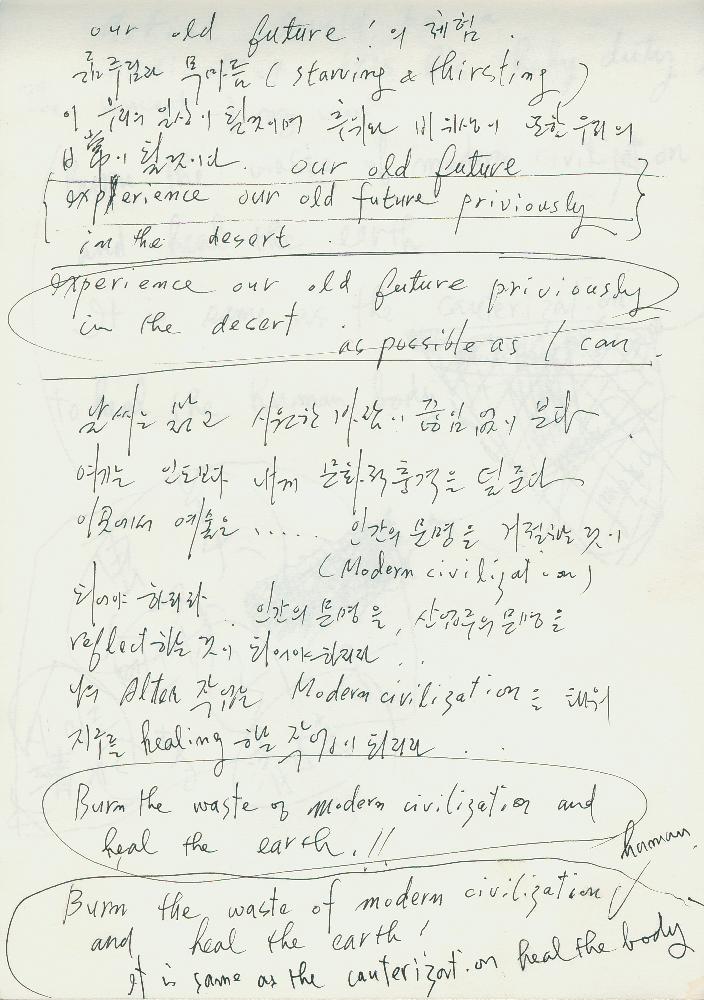 our old future! 의 체험.
굶주림과 목마름 (starving & thirsting)
이 우리의 일상이 될것이며 추위와 비위생이 또한 우리의
日常이 될것이다. our old future
{experience our old future priviously}
in the desert.
experience our old future priviously
in the desert as possible as I can.
날씨는 맑고 시원한 바람이 끊임없이 분다.
여기는 인도보다 내게 문화적 충격을 덜 준다
이곳에서 예술은 ..... 인간의 문명을 거절하는 것이
(Modern civilization)
되어야 하리라. 인간의 문명을, 산업주의 문명을
reflect하는 것이 되어야하리라..
나의 Alter 작업은 Modern civilization을 태워
지구를 healing 하는 작업이 되리라..
Burn the waste of modern civilization and
heal the earth.!!
human
Burn the waste of modern civilization
and heal the earth!
it is same as the cauterization heal the body